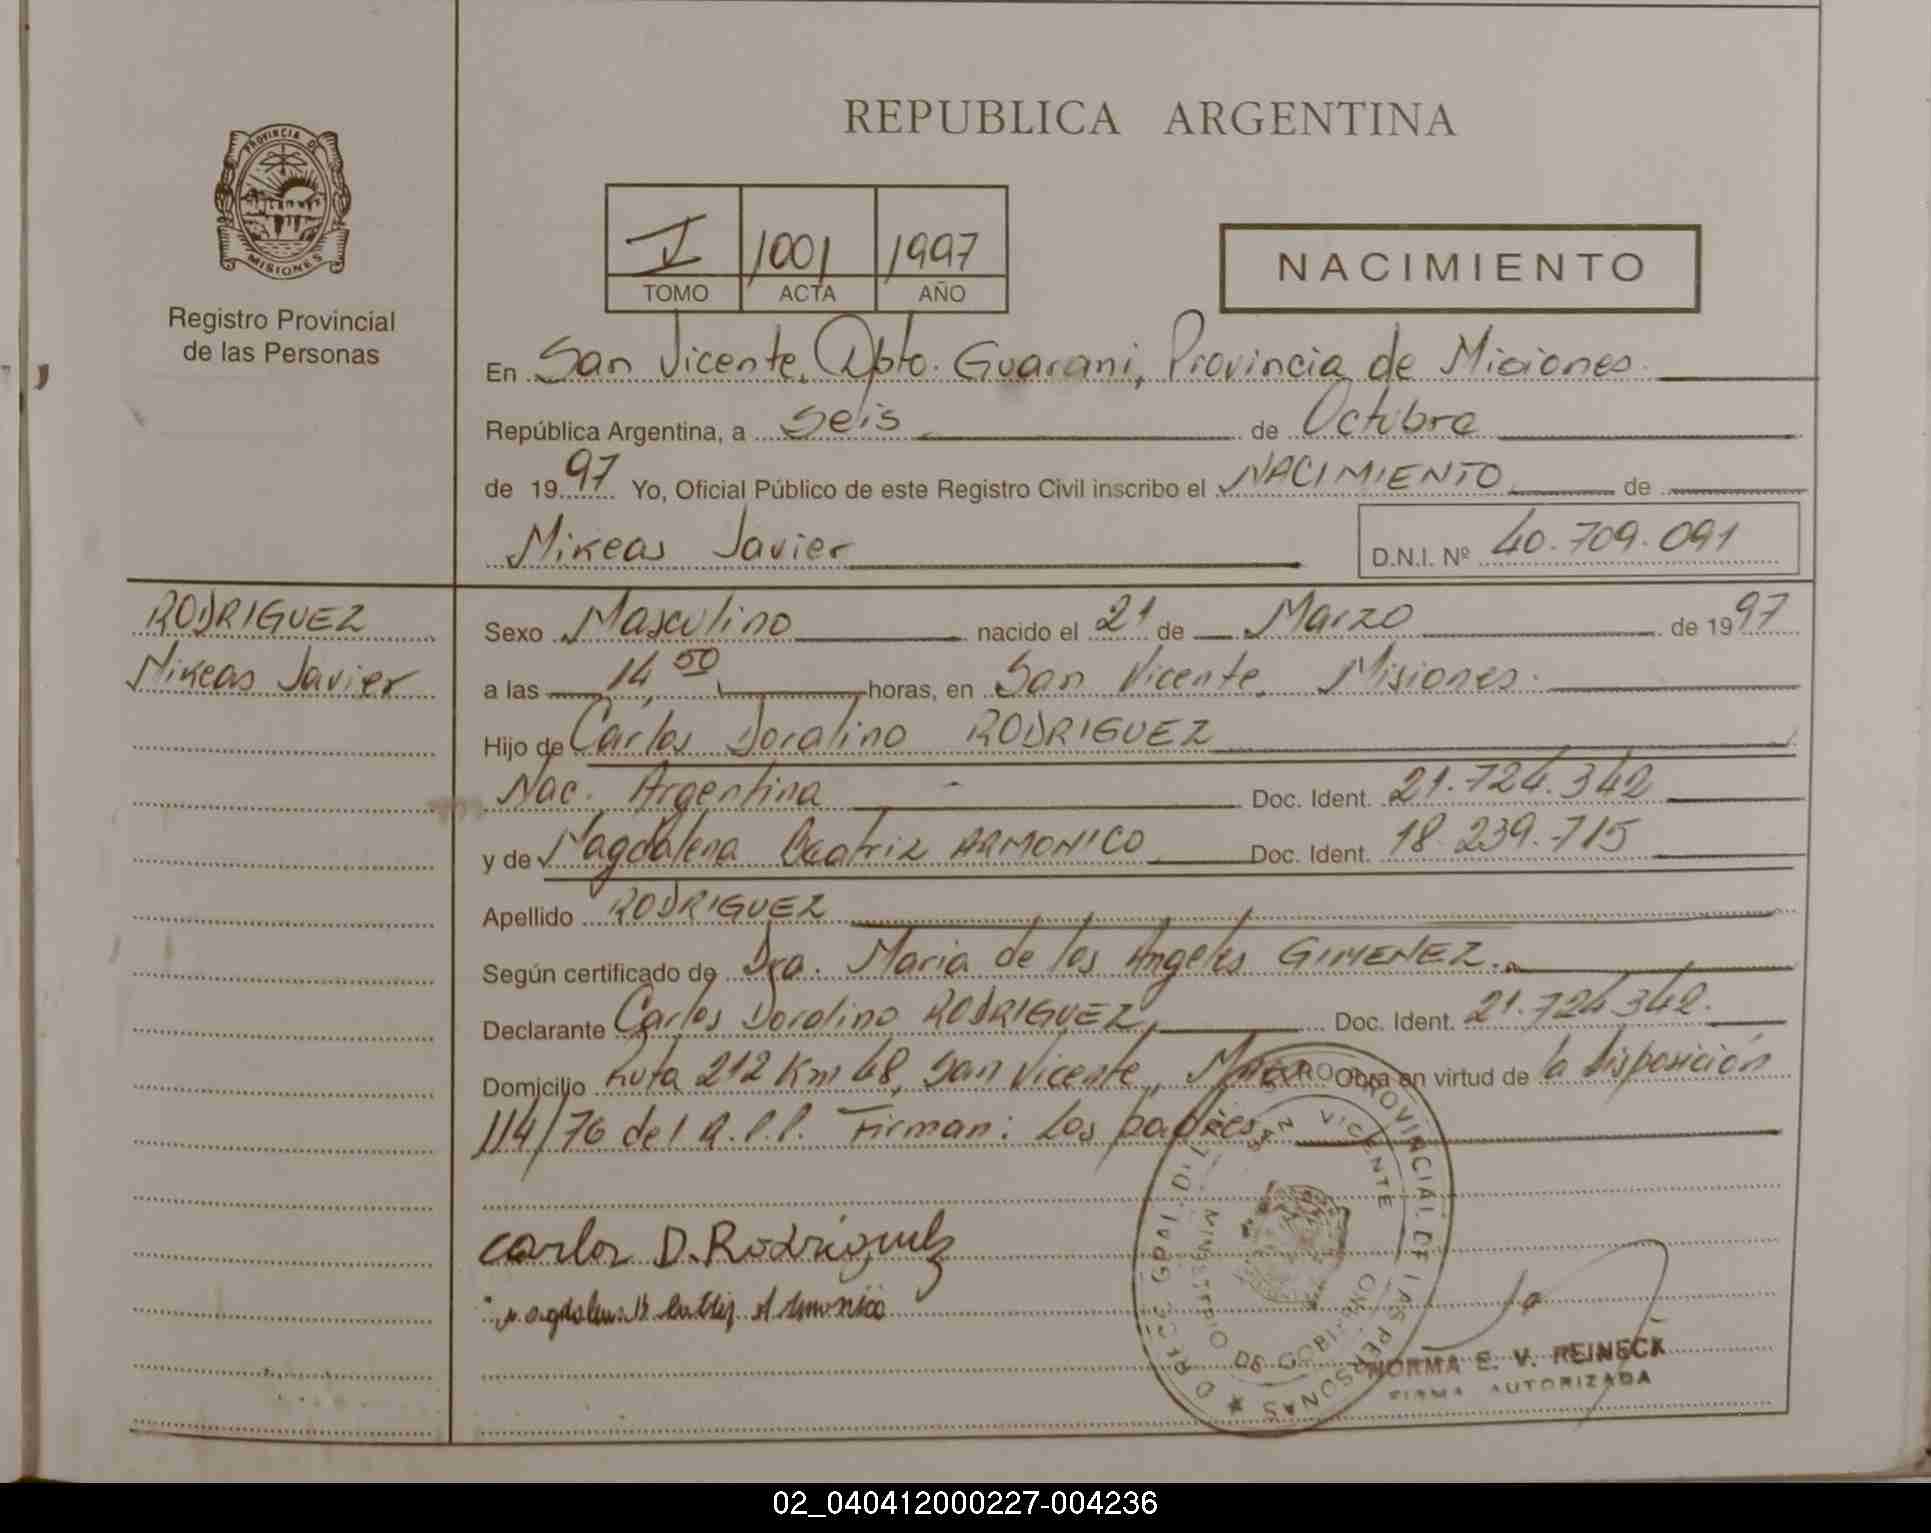 PROVINCIA DE
MISIONES
Registro Provincial
de las Personas
REPUBLICA ARGENTINA
V 1001 1997
TOMO ACTA AÑO
NACIMIENTO
En San Vicente, Dpto. Guarani, Provincia de Misiones.
República Argentina, a Seis de Octubre
de 1997 Yo, Oficial Público de este Registro Civil inscribo el NACIMIENTO de
Mikeas Javier
D.N.I. Nº 40.709.091
RODRIGUEZ
Mikeas Javier
Sexo Masculino nacido el 21 de Marzo de 1997
a las 14,50 horas, en San Vicente, Misiones.
Hijo de Carlos Doralino RODRIGUEZ
Nac. Argentina Doc. Ident. 21.724.342
y de Magdalena Beatriz ARMONICO Doc. Ident. 18.239.715
Apellido RODRIGUEZ
Según certificado de Dra. Maria de los Angeles GIMENEZ.
Declarante Carlos Doralino RODRIGUEZ, Doc. Ident. 21.724.342.
Domicilio Ruta 212 Km 48, San Vicente, Obra en virtud de la Disposición
114/76 del R.P.P. Firman: Los padres
Carlos D. Rodriguez
REGISTRO PROVINCIAL DE LAS PERSONAS
SAN VICENTE
MINISTERIO DE GOBIERNO
NORMA E. V. REINECK
FIRMA AUTORIZADA
02_040412000227-004236